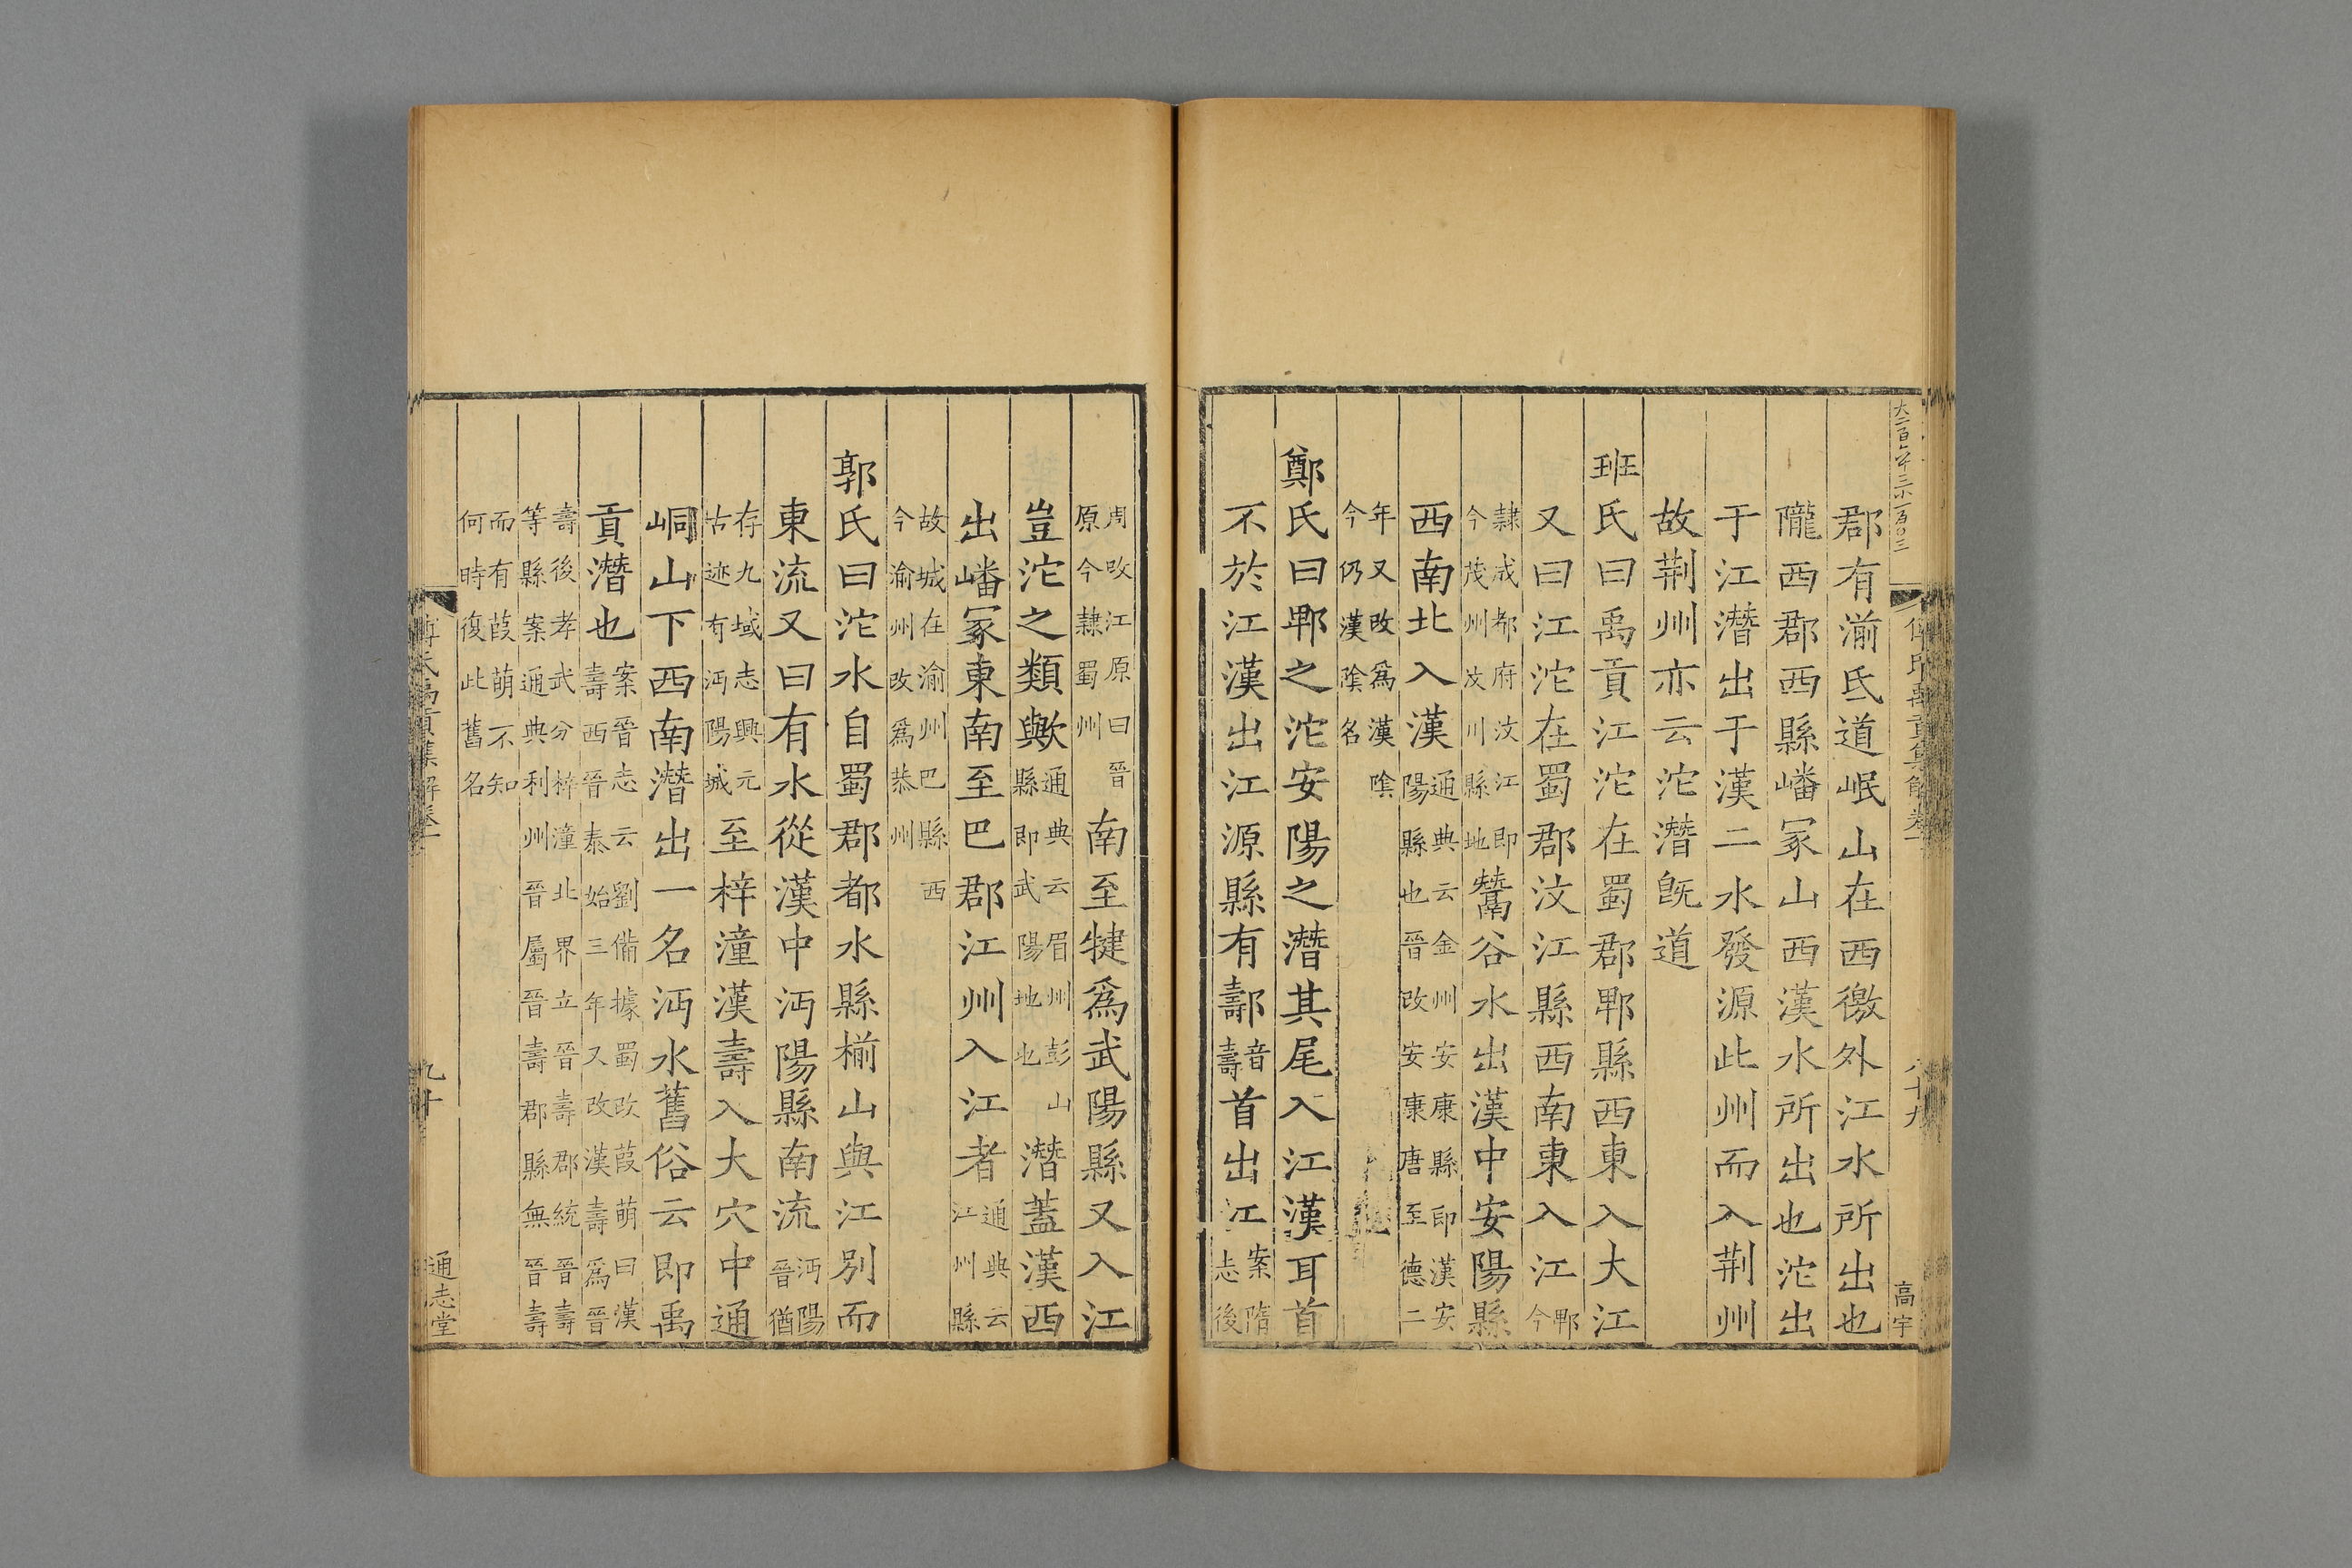 郡有湔氐道岷山在西徼外江水所出也
隴西郡西縣嶓冢山西漢水所出也沱出
于江潛出于漢二水發源此州而入荆州
故荆州亦云沱潛旣道
班氏曰禹貢江沱在蜀郡郫縣西東入大江
又曰江沱在蜀郡汶江縣西南東入江郫今
隸成都府汶江即今茂州汶川縣地鬵谷水出漢中安陽縣
西南北入漢通典云金州安康縣即漢安陽縣也晉改安康唐至德二
年又改爲漢陰今仍漢陰名
鄭氏曰郫之沱安陽之潛其尾入江漢耳首
不於江漢出江源縣有𨞪音壽首出江案隋志後
周改江原曰晉原今隸蜀州南至犍爲武陽縣又入江
豈沱之類歟通典云眉州彭山縣即武陽地也潛蓋漢西
出嶓冢東南至巴郡江州入江者通典云江州縣
故城在渝州巴縣西今渝州改爲恭州
郭氏曰沱水自蜀郡都水縣揃山與江別而
東流又曰有水從漢中沔陽縣南流沔陽晉猶
存九域志興元古迹有沔陽城至梓潼漢壽入大穴中通
峒山下西南潛出一名沔水舊俗云即禹
貢潛也案晉志云劉備據蜀改葭萌曰漢壽西晉泰始三年又改漢壽爲晉
壽後孝武分梓潼北界立晉壽郡統晉壽等縣案通典利州晉屬晉壽郡縣無晉壽
而有葭萌不知何時復此舊名
八十九
高宇
九十
通志堂